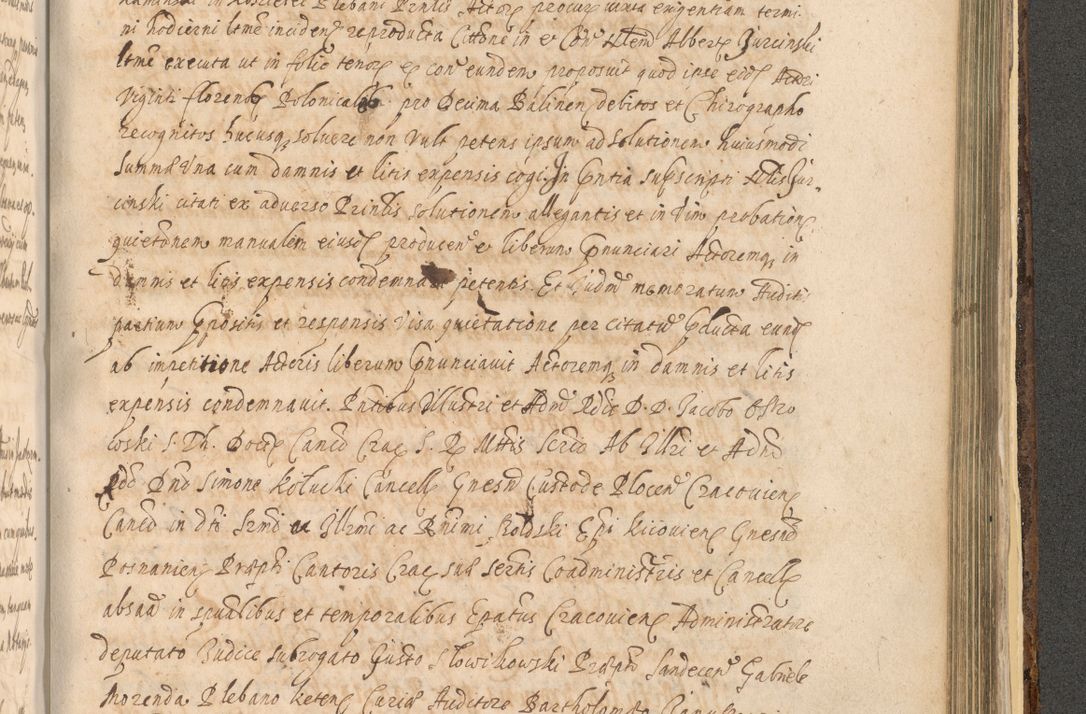 Kaminski in Kosciesei Plebani Prntis Actor procur iuxta exigentiam termi
ni hodierni ltme inciden reproducta Cittone in et Con Alberti Jurcinski
ltme executa ut in folio tenor et con eundem proposuit quod ipse eid Actori
Viginti florenos Polonicales pro Decima Balinen debitos et Chirographo
recognitos hucusq solvere non vult petens ipsum ad solutionem huiusmodi
Summæ una cum damnis et litis expensis cogi. In Cpntia subscripti Jur
cinski citati ex adverso Prntis solutionem allegantis et in vim probation
quietonem manualem eiusd producen et liberum Cpnunciari Actoremq in
damnis et litis expensis condemnari petentis. Et Judm memoratum Auditis
partium Cpositis et responsis visa quietatione per citatum Cpducta eund
ab impetitione Actoris liberum Cpnunciavit Actoremq in damnis et litis
expensis condemnavit. Pntibus Illustri et Adm Rdis D. D. Jacobo Ostro
woski S. Th. Doct Canco Crac S. R. Mttis Screo Ab Illri et Adm
Rdo Dno Simone Kolucki Cancell Gnesn Custode Plocen Cracovien
Canco in dti Srmi ac Illrmi ac Rnimi Epi Kiovien Gnesn
Posnanien Præpti Cantoris Crac sub sertis Coadministris et Cancell
absad in spualibus et temporalibus Epatus Cracovien Administratore
deputato Judice subrogato Justo Slowikowski Præpto Sandecen Gabriele
Morenda Plebano Keten Curiæ Auditore Bartholomæo